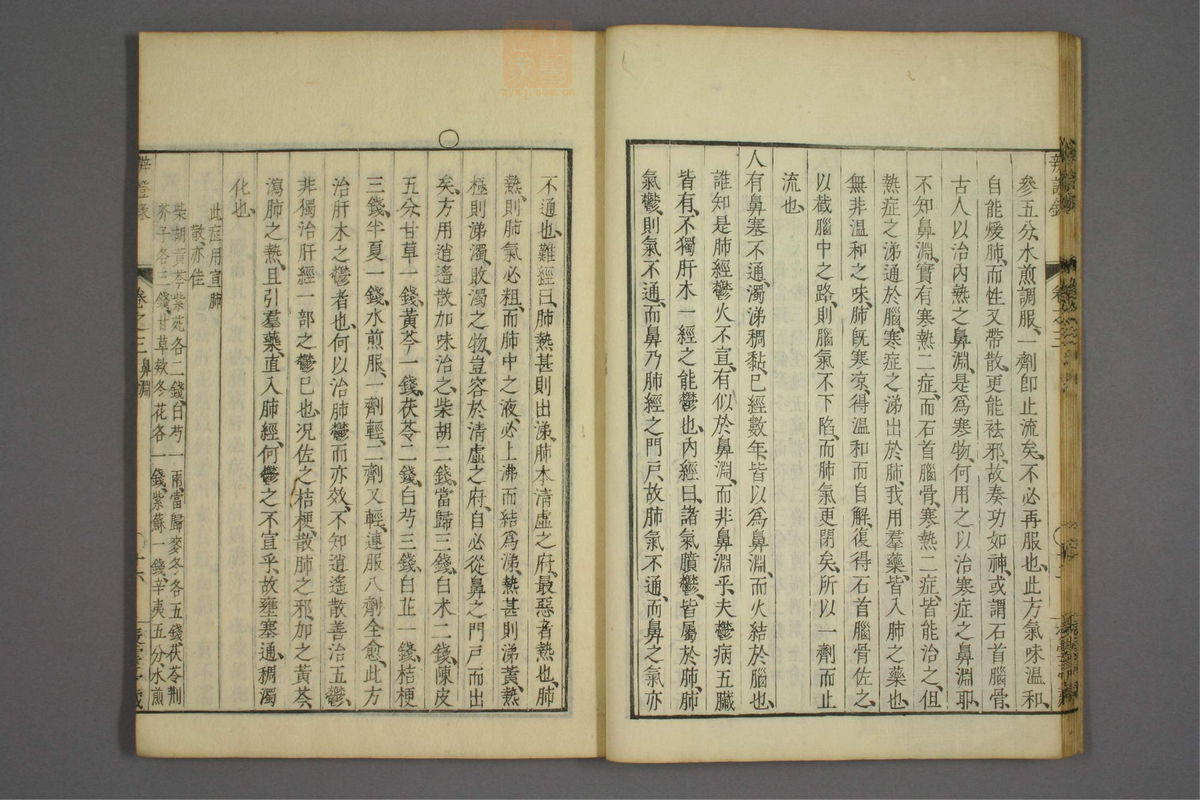 辨證錄 卷之三
參五分、水煎調服、一劑卽止流矣、不必再服也、此方氣味溫和、
自能煖肺、而性又帶散、更能祛邪、故奏功如神、或謂石首腦骨、
古人以治內熱之鼻淵、是爲寒物、何用之以治寒症之鼻淵耶、
不知鼻淵、實有寒熱二症、而石首腦骨、寒熱二症、皆能治之、但
熱症之涕通於腦、寒症之涕出於肺、我用羣藥、皆入肺之藥也、
無非溫和之味、肺旣寒涼、得溫和而自解、復得石首腦骨佐之、
以截腦中之路、則腦氣不下陷、而肺氣更閉矣、所以一劑而止
流也、
人有鼻塞不通、濁涕稠黏、已經數年、皆以爲鼻淵、而火結於腦也、
誰知是肺經鬱火不宣、有似於鼻淵、而非鼻淵乎、夫鬱病五臟
皆有、不獨肝木一經之能鬱也、內經曰、諸氣膹鬱、皆屬於肺、肺
氣鬱、則氣不通、而鼻乃肺經之門戶、故肺氣不通、而鼻之氣亦
不通也、難經曰、肺熱甚則出涕、肺本清虛之府、最惡者熱也、肺
熱、則肺氣必粗、而肺中之液、必上沸而結爲涕、熱甚則涕黃、熱
極則涕濁、敗濁之物、豈容於清虛之府、自必從鼻之門戶而出
矣、方用逍遙散加味治之、柴胡二錢、當歸三錢、白术二錢、陳皮
五分、甘草一錢、黃芩一錢、茯苓二錢、白芍三錢、白芷一錢、桔梗
三錢、半夏一錢、水煎服、一劑輕、二劑又輕、連服八劑全愈、此方
治肝木之鬱者也、何以治肺鬱而亦效、不知逍遙散善治五鬱、
非獨治肝經一部之鬱已也、况佐之桔梗、散肺之邪、加之黃芩、
瀉肺之熱、且引羣藥、直入肺經、何鬱之不宣乎、故壅塞通、稠濁
化也、
此症用宣肺
散、亦佳
柴胡黃芩紫苑各二錢、白芍一兩、當歸麥冬各五錢、茯苓荆
芥子各三錢、甘草款冬花各一錢、紫蘇一錢、辛夷五分、水煎
卷之三 鼻淵
十六